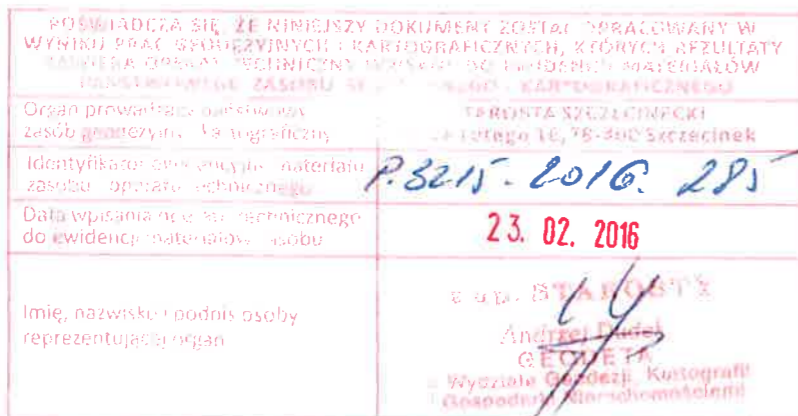 POŚWIADCZA SIĘ, ŻE NINIEJSZY DOKUMENT ZOSTAŁ OPRACOWANY W
WYNIKU PRAC GEODEZYJNYCH I KARTOGRAFICZNYCH, KTÓRYCH REZULTATY
ZAWIERA OPERAT TECHNICZNY WPISANY DO EWIDENCJI MATERIAŁÓW
PAŃSTWOWEGO ZASOBU KARTOGRAFICZNEGO
Organ prowadzący państwowy
zasób geodezyjny kartograficzny
STAROSTA SZCZECINECKI
16, 78-400 Szczecinek
Identyfikator ewidencyjny materiału
zasobu operatu technicznego
P.3215.2016.285
Data wpisania operatu technicznego
do ewidencji materiałów zasobu
23. 02. 2016
Imię, nazwisko i podpis osoby
reprezentującej organ
z up. STAROSTY
Andrzej Dudek
GEODETA
Wydziale Geodezji, Kartografii
Gospodarki Nieruchomościami